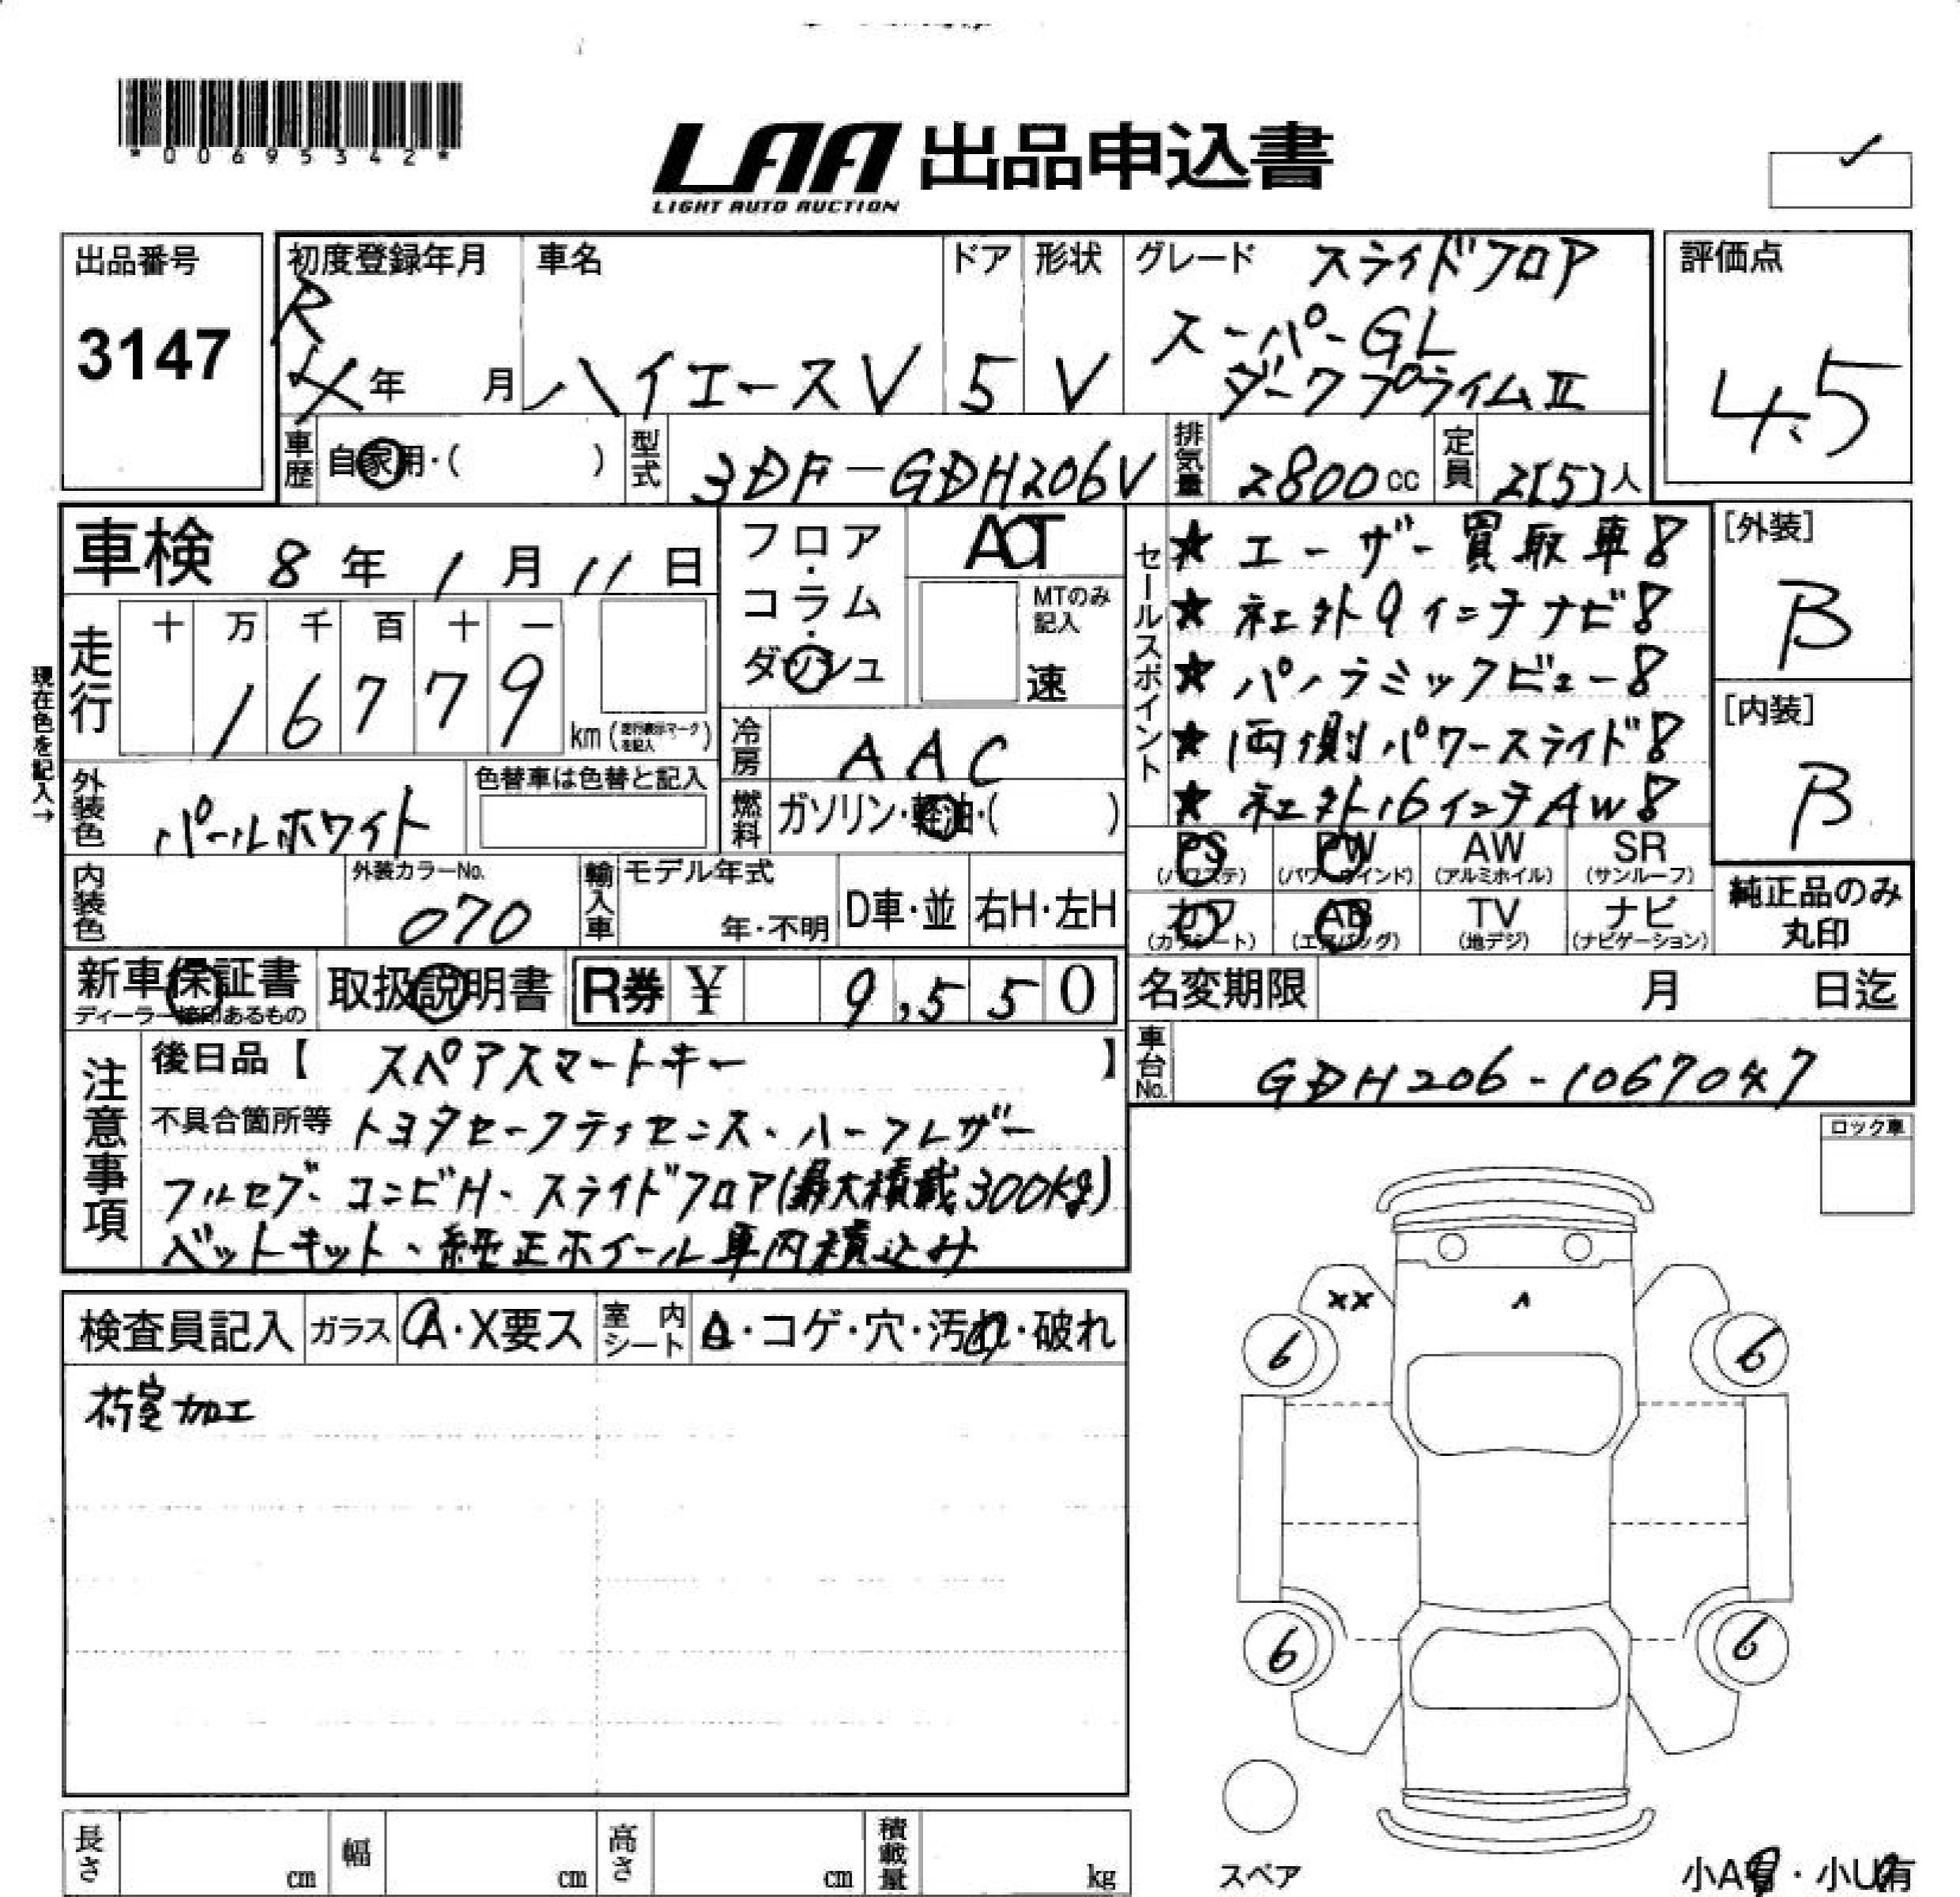 *00695342*
LAA 出品申込書
LIGHT AUTO AUCTION
出品番号
3147
初度登録年月
R
4年 月
車名
ハイエースV
ドア
5
形状
V
グレード スライドフロア
スーパーGL
ダークプライムⅡ
評価点
4.5
車歴 自家用・( )
型式 3DF-GDH206V
排気量 2800cc
定員 2[5]人
車検 8年1月11日
走行
十万千百十一
16779
km(走行表示マークを記入)
現在色を記入→
外装色 パールホワイト
色替車は色替と記入
内装色
外装カラーNo.
070
フロア・コラム・ダッシュ
AT
MTのみ記入
速
冷房 AAC
燃料 ガソリン・軽油・( )
輸入車
モデル年式
年・不明
D車・並
右H・左H
セールスポイント
★ユーザー買取車!!
★社外9インチナビ!!
★パノラミックビュー!!
★両側パワースライド!!
★社外16インチAW!!
[外装]
B
[内装]
B
PS (パワステ)
PW (パワーウィンド)
AW (アルミホイル)
SR (サンルーフ)
カワ (カワシート)
AB (エアバッグ)
TV (地デジ)
ナビ (ナビゲーション)
純正品のみ
丸印
新車保証書
ディーラー捺印あるもの
取扱説明書
R券 ¥ 9,550
名変期限 月 日迄
車台No. GDH206-1067047
注意事項
後日品【 スペアスマートキー 】
不具合箇所等 トヨタセーフティセンス、ハーフレザー
フルセグ、コンビH、スライドフロア(最大積載300kg)
ベットキット、純正ホイール車内積込み
ロック車
検査員記入
ガラス A・X要ス
室内シート △・コゲ・穴・汚れ・破れ
荷室加工
XX
^
6
6
6
6
スペア
長さ cm
幅 cm
高さ cm
積載量 kg
小A有・小U有